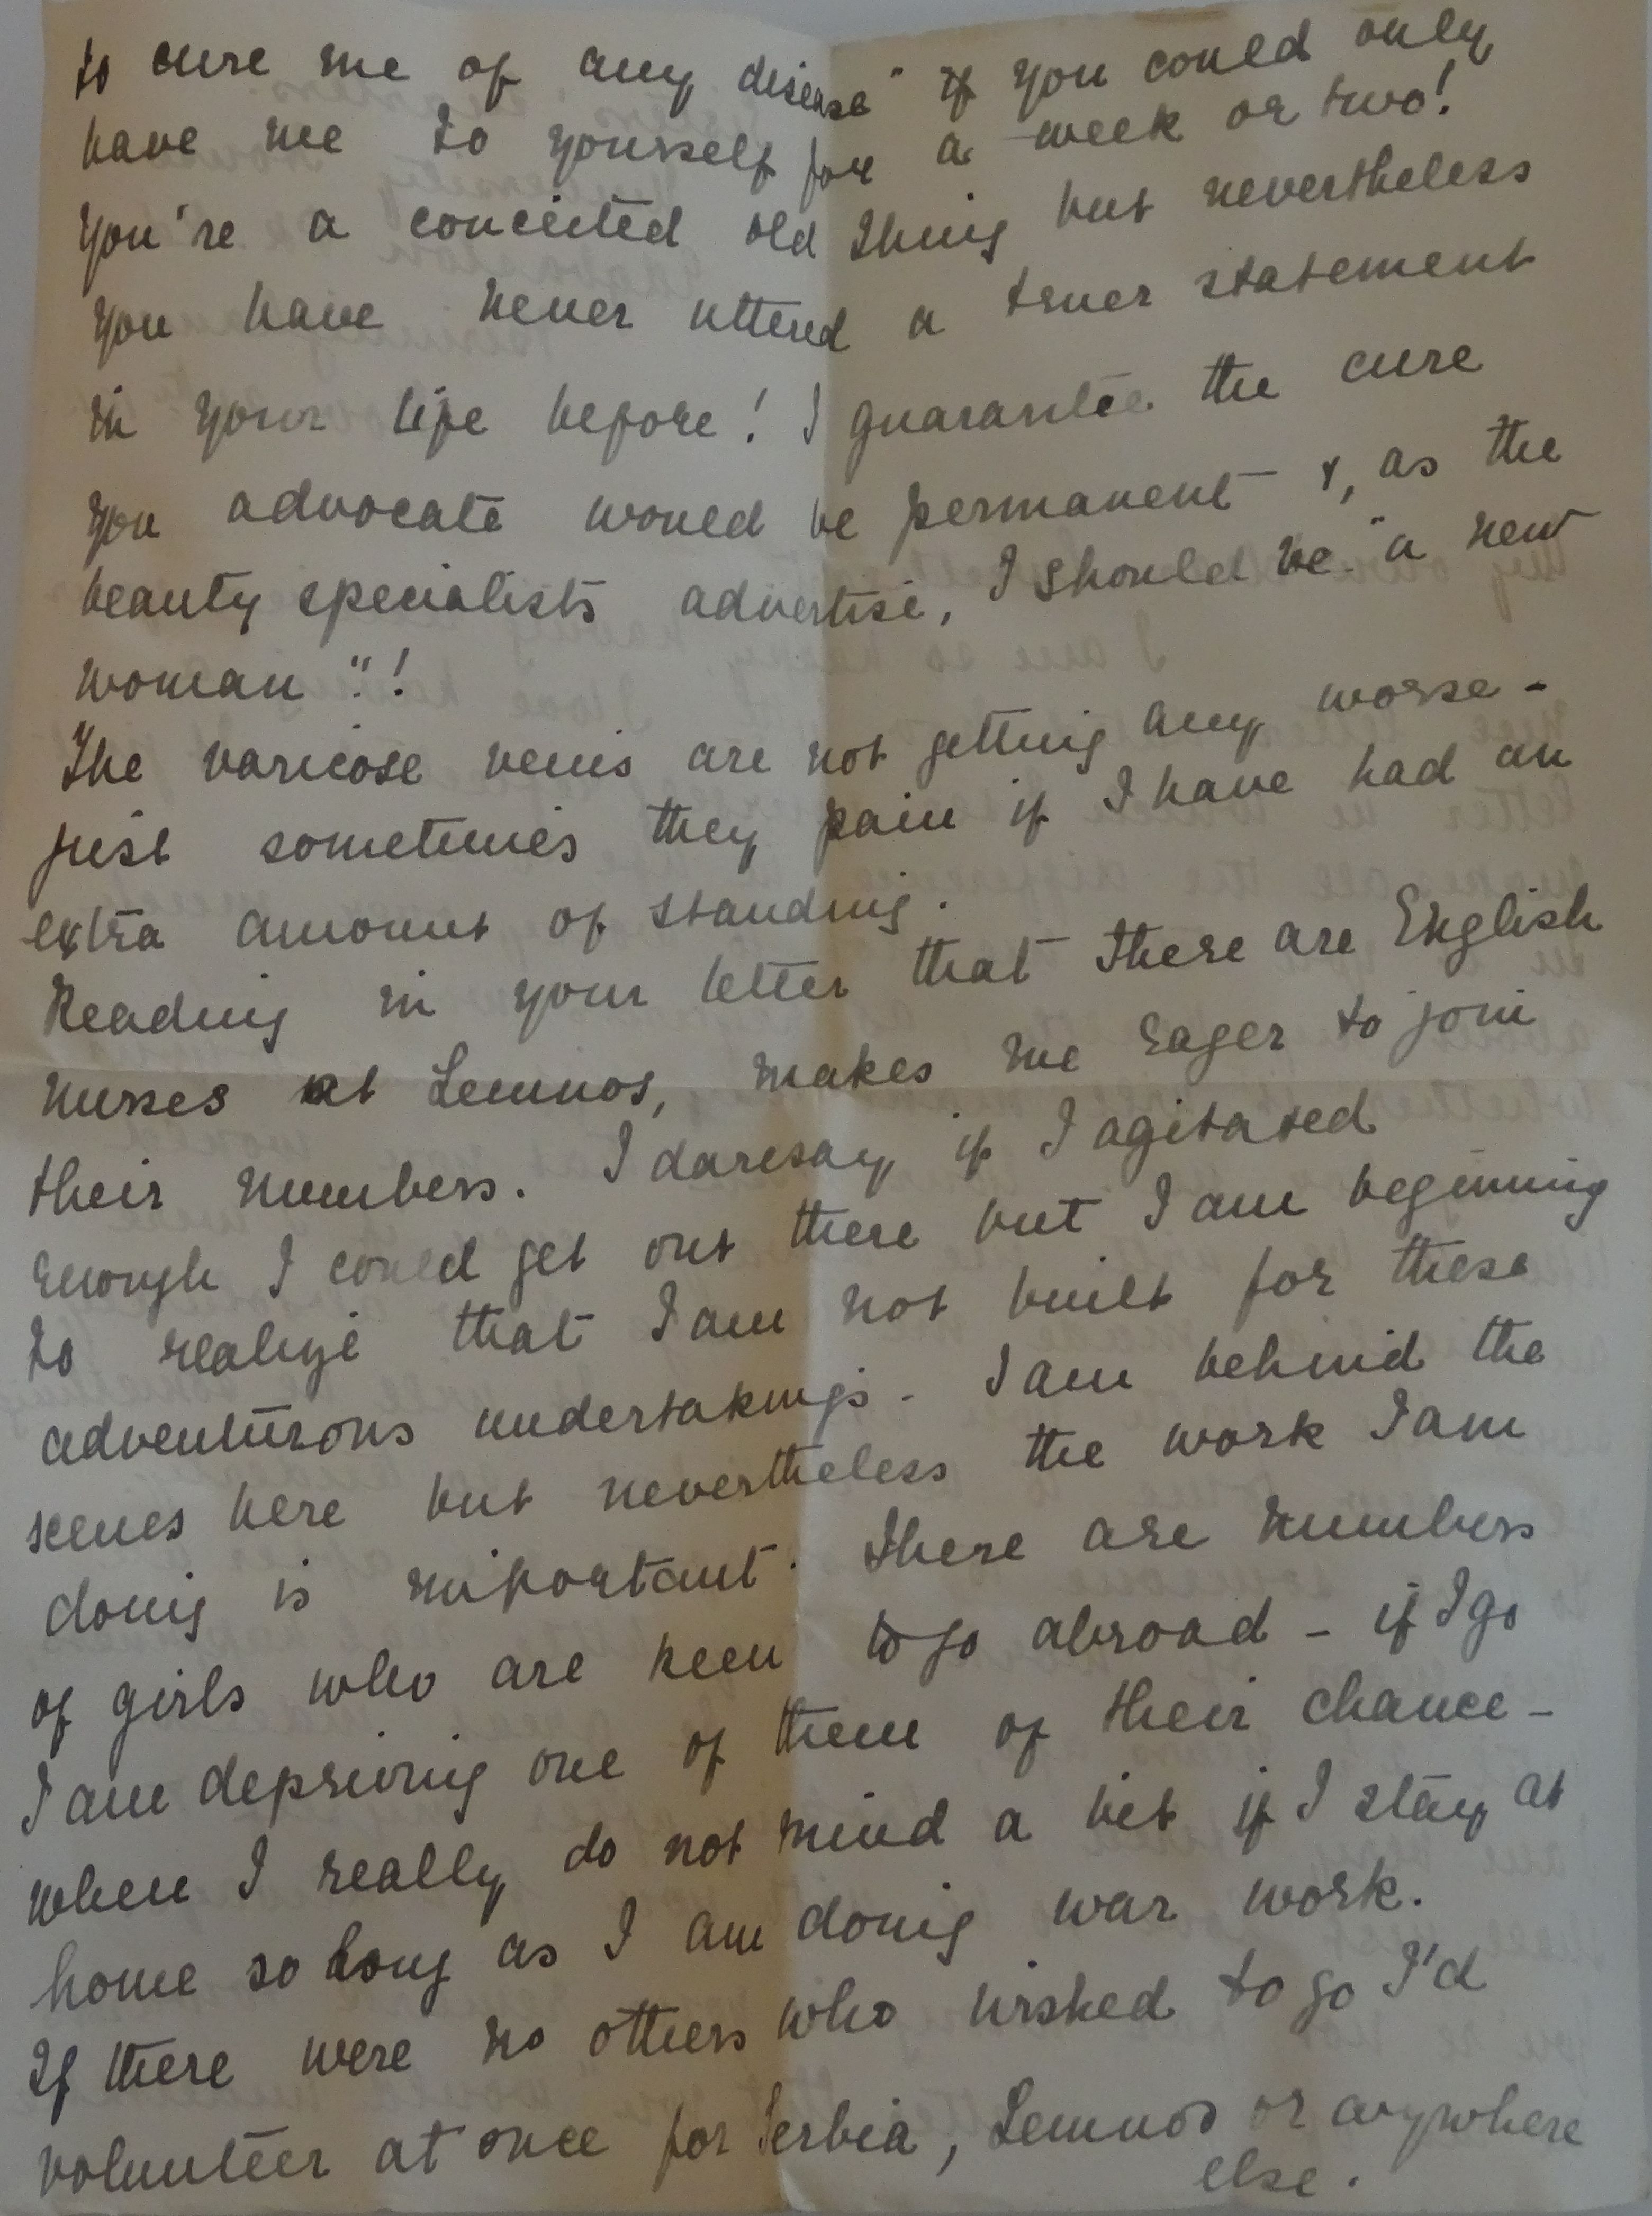 to cure me of any disease" if you could only
have me to yourself for a week or two!
You're a conceited old thing but nevertheless
you have never uttered a truer statement
in your life before! I guarantee the cure
you advocate would be permanent &, as the
beauty specialists advertise, I should be "a new
woman"!
The varicose veins are not getting any worse -
just sometimes they pain if I have had an
extra amount of standing.
Reading in your letter that there are English
nurses at Lemnos, makes me eager to join
their numbers. I daresay if I agitated
enough I could get out there but I am beginning
to realize that I am not built for these
adventurous undertakings. I am behind the
scenes here but nevertheless the work I am
doing is important. There are numbers
of girls who are keen to go abroad - if I go
I am depriving one of them of their chance -
when I really do not mind a bit if I stay at
home so long as I am doing war work.
If there were no others who wished to go I'd
volunteer at once for Serbia, Lemnos or anywhere
else.